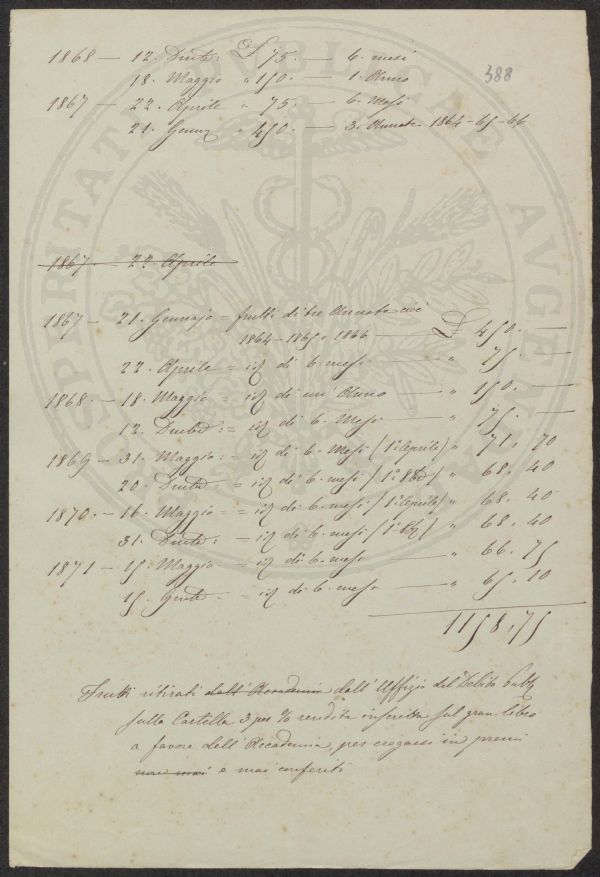 388
1868 — 12. Dicbre: £ 75. — 6. mesi
18. Maggio " 150. — 1. Anno
1867 — 22. Aprile " 75. — 6. Mesi
21. Genn " 450. — 3. Annate 1864-65-66
1867 — 22 Aprile
1867 — 21. Gennajo = frutti di tre Annate cioè
1864 - 1865 e 1866 — £ 450. —
22. Aprile = id di 6. mesi — " 75. —
1868. — 18. Maggio = id di un' Anno — " 150. —
12. Dicbre: = id di 6. Mesi — " 75. —
1869 — 31. Maggio: = id di 6. Mesi (1° Aprile) " 71. 70
20. : = id di 6. mesi (1° 8bre) " 68. 40
1870. — 16. Maggio = id di 6. mesi (1° Aprile) " 68. 40
31. : = id di 6. mesi (1° ) " 68. 40
1871 — 15. Maggio = id di 6. mesi — " 66. 75
15. : = id di 6. mesi — " 65. 10
1158,75
Frutti ritirati dall' Accademia dall' Uffizio del Debito Pubb
sulla Cartella 3 per % rendita inscritta sul gran libro
a favore dell' Accademia, per erogarsi in premi
non mai e mai conferiti
PROSPERITATI PUBLICAE AVGENDAE